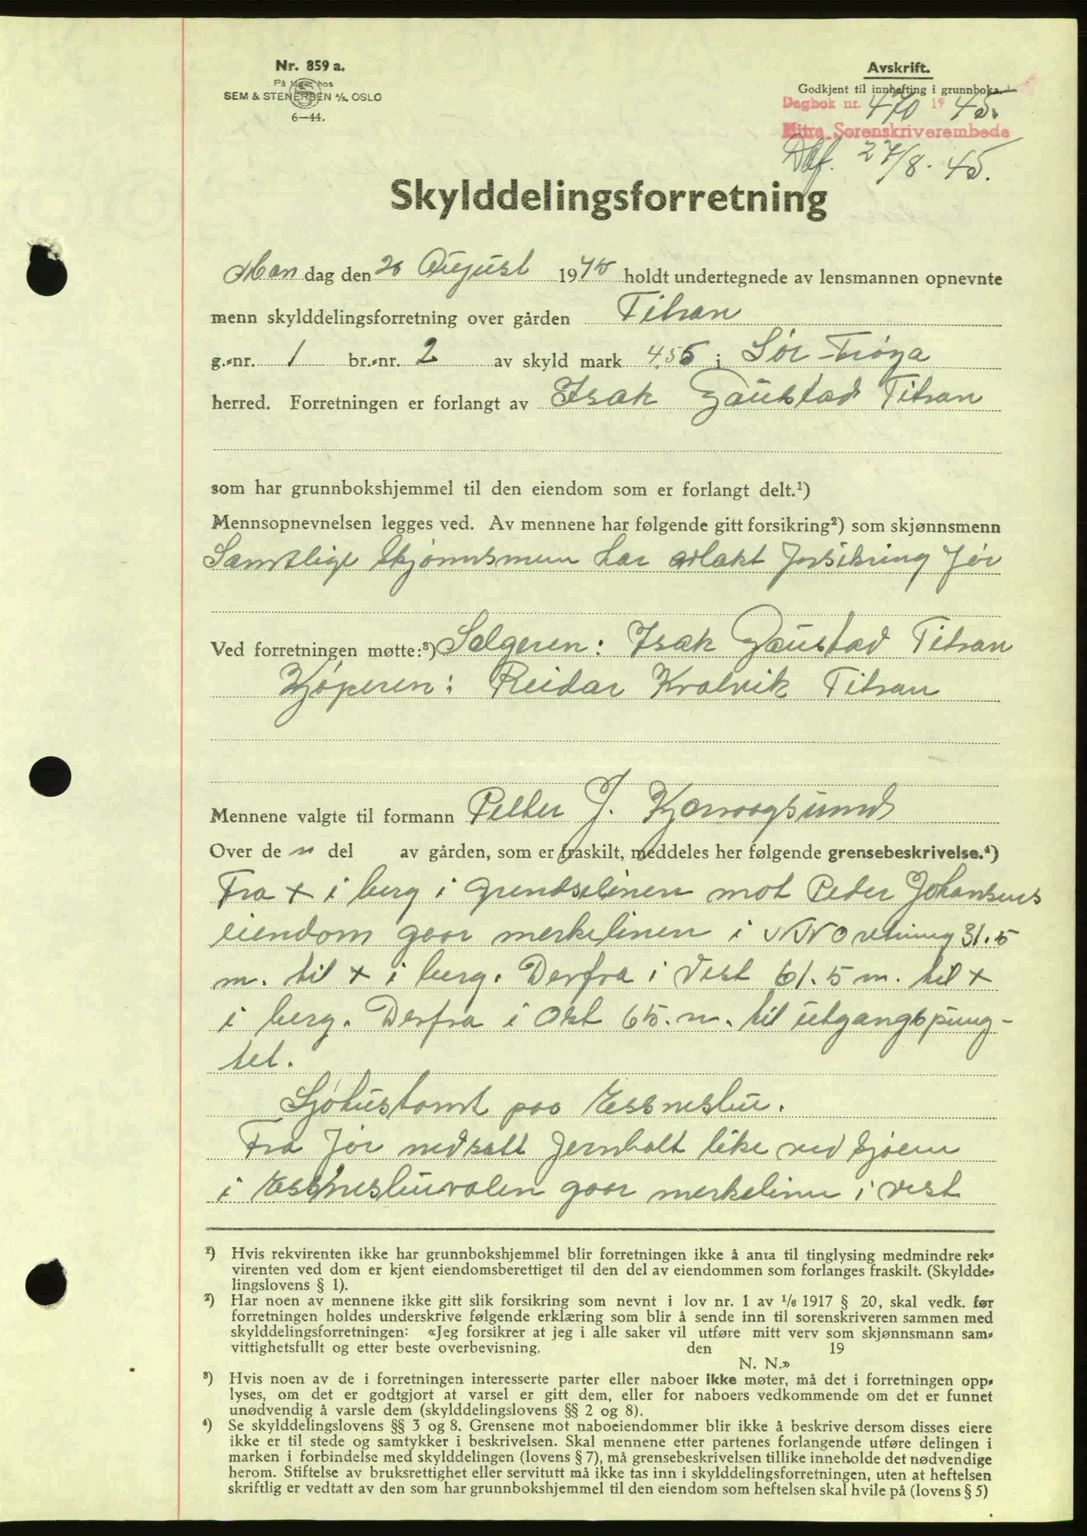 Nr. 859 a.
På lager hos
SEM & STENERSEN A/S. OSLO
6—44.
Avskrift.
Godkjent til innhefting i grunnboka.
Dagbok nr. 470 19 45.
Hitra Sorenskriverembede
27/8. 45.
Skylddelingsforretning
Mandag den 20 August 1945 holdt undertegnede av lensmannen opnevnte
menn skylddelingsforretning over gården Titran
g.-nr. 1 br.-nr. 2 av skyld mark 4.55 i Sør-Frøya
herred. Forretningen er forlangt av Isak Gaustad Titran
som har grunnbokshjemmel til den eiendom som er forlangt delt.¹)
Mennsopnevnelsen legges ved. Av mennene har følgende gitt forsikring²) som skjønnsmenn
Samtlige skjønnsmenn har avlakt forsikring før
Ved forretningen møtte:³) Selgeren: Isak Gaustad Titran
Kjøperen: Reidar Kvalvik Titran
Mennene valgte til formann Petter J.
Over de n del av gården, som er fraskilt, meddeles her følgende grensebeskrivelse.⁴)
Fra + i berg i grendselinen mot Peder Johansens
eiendom gaar merkelinen i NNO retning 31.5
m. til + i berg. Derfra i Vest 61.5 m. til +
i berg. Derfra i Ost 65. m. til utgangspung-
tet.
Sjøhustomt paa Essneshu.
Fra før nedsatt jernbolt like ved sjøen
i gaar merkelinen i vest
¹) Hvis rekvirenten ikke har grunnbokshjemmel blir forretningen ikke å anta til tinglysing medmindre rek-
virenten ved dom er kjent eiendomsberettiget til den del av eiendommen som forlanges fraskilt. (Skyldde-
lingslovens § 1).
²) Har noen av mennene ikke gitt slik forsikring som nevnt i lov nr. 1 av 1/6 1917 § 20, skal vedk. før
forretningen holdes underskrive følgende erklæring som blir å sende inn til sorenskriveren sammen med
skylddelingsforretningen: «Jeg forsikrer at jeg i alle saker vil utføre mitt verv som skjønnsmann sam-
vittighetsfullt og etter beste overbevisning. den 19
N. N.»
³) Hvis noen av de i forretningen interesserte parter eller naboer ikke møter, må det i forretningen opp-
lyses, om det er godtgjort at varsel er gitt dem, eller for naboers vedkommende om det er funnet
unødvendig å varsle dem (skylddelingslovens §§ 2 og 8).
⁴) Se skylddelingslovens §§ 3 og 8. Grensene mot naboeiendommer blir ikke å beskrive dersom disses eiere
ikke er til stede og samtykker i beskrivelsen. Skal mennene etter partenes forlangende utføre delingen i
marken i forbindelse med skylddelingen (lovens § 7), må grensebeskrivelsen tillike inneholde det nødvendige
herom. Stiftelse av bruksrettighet eller servitutt må ikke tas inn i skylddelingsforretningen, uten at heftelsen
skriftlig er vedtatt av den som har grunnbokshjemmel til den eiendom som heftelsen skal hvile på (lovens § 5)